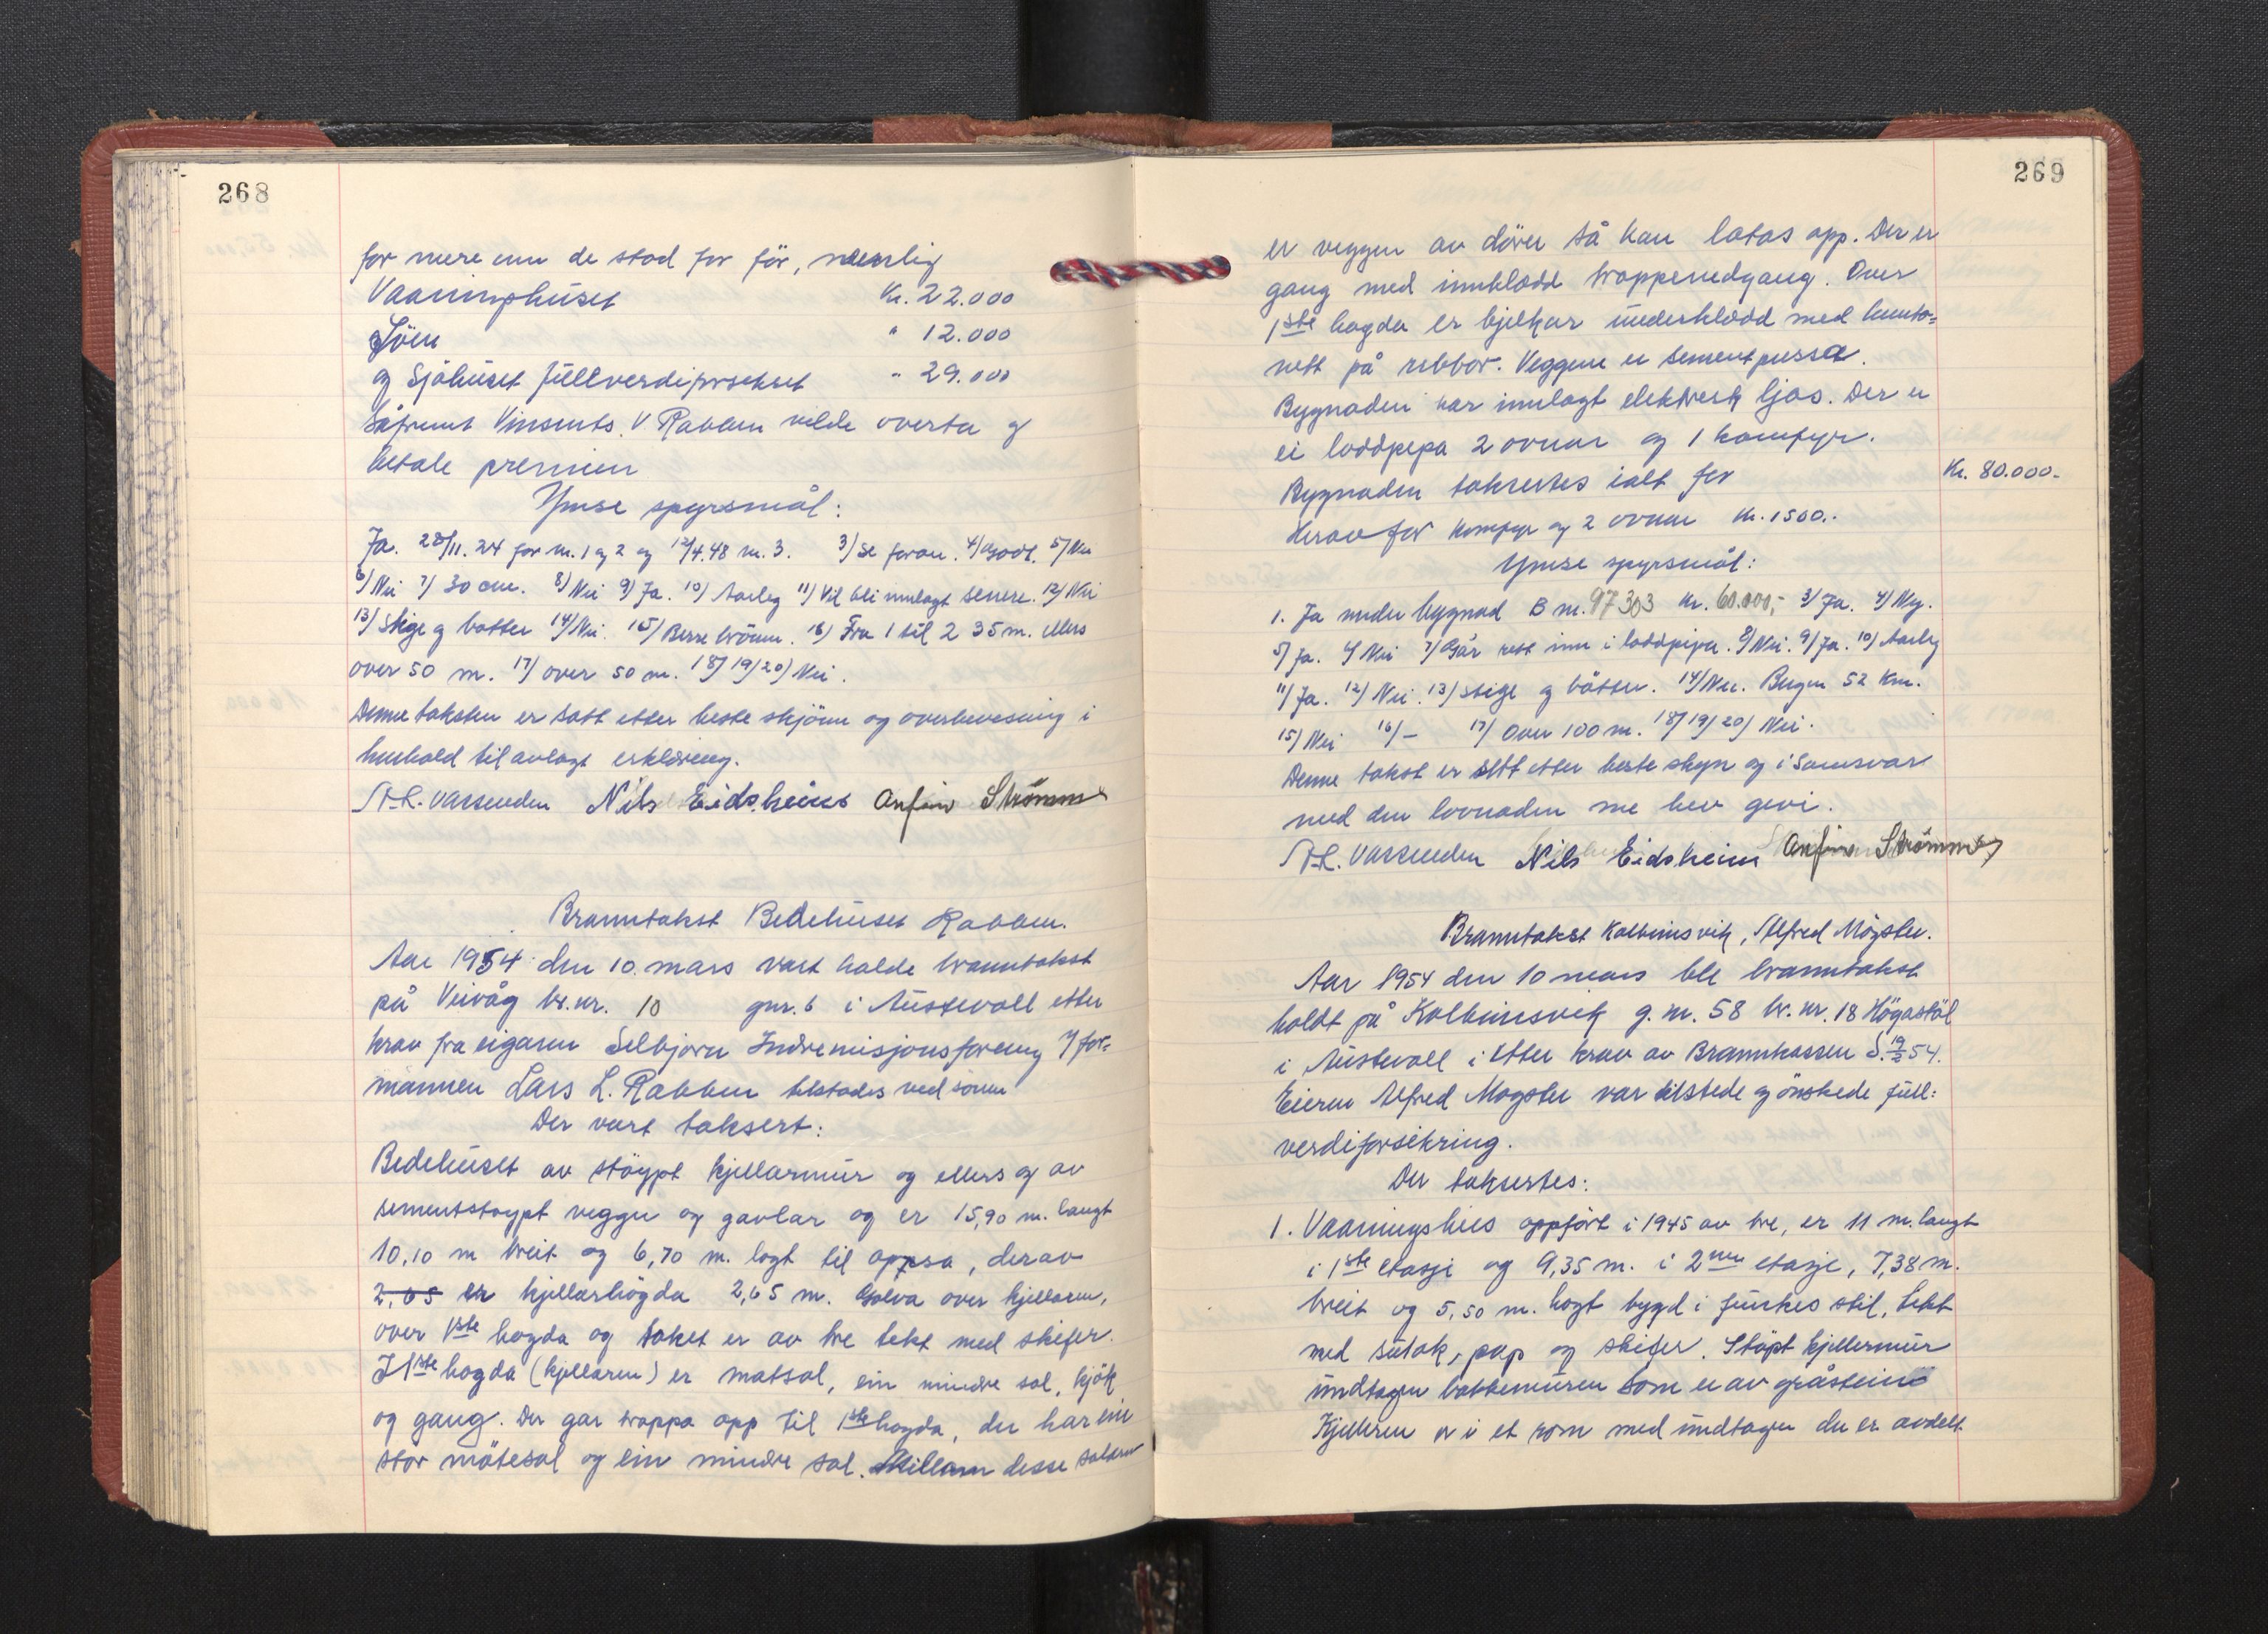 268
for mere enn de stod for för, nemlig
Vaaningshuset Kr. 22.000
Löen " 12.000
og Sjöhuset fullverdiforsekret " 29.000
såfremt Vinsents V Rabben vilde overta og
betale premien
Ymse spyrsmål:
Ja. 28/11.24 for nr. 1 og 2 og 12/4.48 nr. 3. 3) Se foran. 4) Godt. 5) Nei
6) Nei 7) 30 cm. 8) Nei 9) Ja. 10) Aarleg 11) Vil bli innlagt senere. 12) Nei
13) Stige og bötter 14) Nei. 15) Berre brönn. 16) Fra 1 til 2 35 m. ellers
over 50 m. 17) over 50 m. 18) 19) 20) Nei.
Denne taksten er satt etter beste skjönn og overbevisning i
henhold til avlagt erklæring.
Nils Eidsheim Anfinn Strömme
Branntakst Bedehuset Rabben.
Aar 1954 den 10. mars vart halde branntakst
på Veivåg br.nr. 10 gnr. 6 i Austevoll etter
krav fra eigaren Selbjorn Indremisjonsforening v/ for-
mannen Lars L. Rabben tilstades ved sonen
Der vart taksert:
Bedehuset av stöypt kjellarmur og ellers og av
sementstoypt vegger og gavlar og er 15,90 m. langt
10,10 m breit og 6,70 m. hogt til oppsa, derav
2,65 er kjellarhögda 2,65 m. Golva over kjellaren,
over 1ste hogda og taket er av tre tekt med skifer.
I 1ste hogda (kjellaren) er matsal, ein mindre sal, kjök
og gang. Der gar trappa opp til 1ste hogda, der har ein
stor mötesal og ein mindre sal. Millom desse salane
269
er veggen av dörer så kan latas opp. Der er
gang med innkledd trappenedgang. Over
1ste hogda er bjelkar underkledd med hunto-
nett på ribbor. Veggene er sementpussa.
Bygnaden har innlagt elektrisk ljos. Der er
ei loddpipa 2 ovnar og 1 komfyr.
Bygnaden taksertes ialt for Kr. 80.000.-
Herav for komfyr og 2 ovnar kr. 1500.-
Ymse spyrsmål:
1. Ja under bygnad B nr. 97303 kr. 60.000,- 3) Ja. 4) Ny.
5) Ja. 6) Nei 7) Går rett inn i loddpipa. 8) Nei. 9) Ja. 10) Aarleg
11) Ja. 12) Nei. 13) Stige og bötter. 14) Nei. Bergen 52 km.
15) Nei 16) – 17) Over 100 m. 18) 19) 20) Nei.
Denne takst er sett etter beste skyn og i samsvar
med den lovnaden me hev gjevi.
Nils Eidsheim Anfinn Strömme
Branntakst Kolbeinsvik, Alfred Mögster.
Aar 1954 den 10 mars ble branntakst
holdt på Kolbeinsvik g.nr. 58 br.nr. 18 Högastöl
i Austevoll i etter krav av Brannkassen d. 19/2 54.
Eieren Alfred Mogster var tilstede og önskede full-
verdiforsikring.
Der taksertes:
1. Vaaningshus oppfört i 1945 av tre, er 11 m. langt
i 1ste etasje og 9,35 m. i 2nen etasje, 7,38 m.
breit og 5,50 m. hogt bygd i funkis stil, tekt
med sutak, pap og skifer. Stöpt kjellermur
undtagen bakkemuren som er av gråstein
Kjelleren er i et rom med undtagen der er avdelt